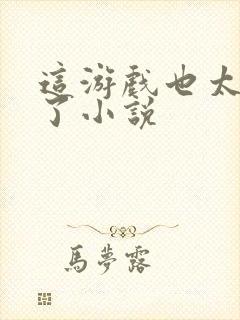 這游戲也太
了小說
馬夢露